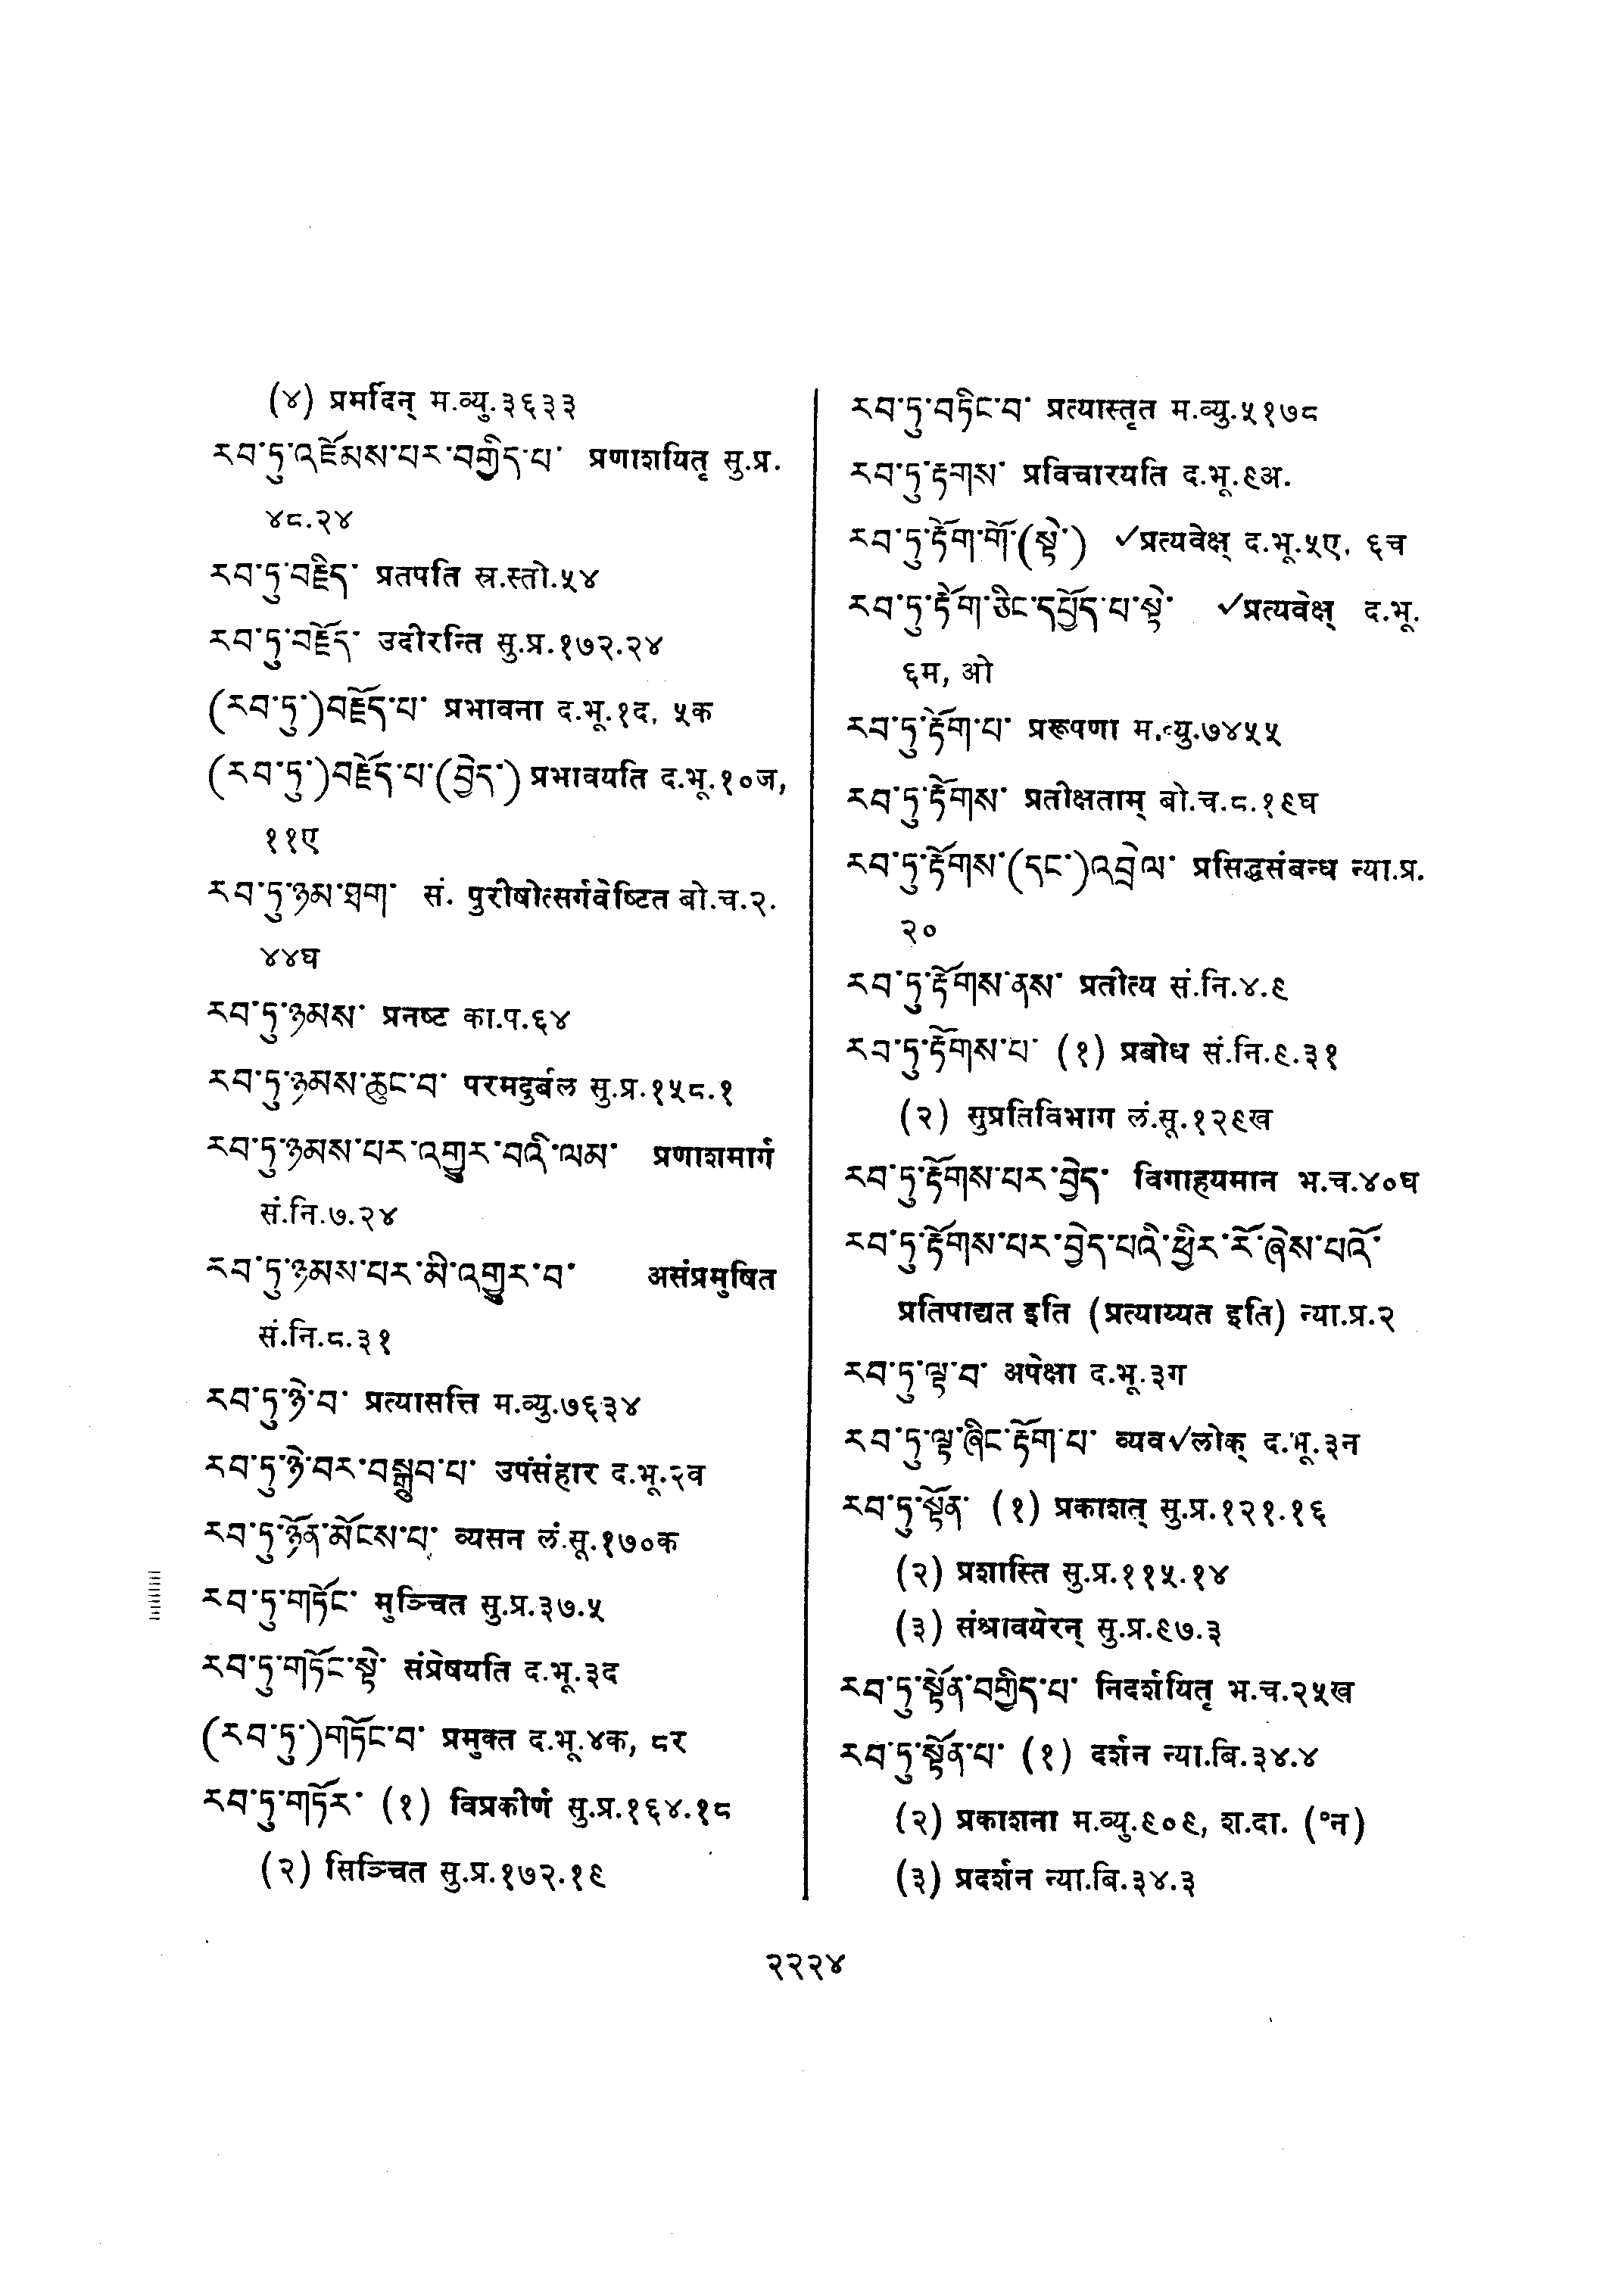 (४) प्रमर्दिन् म.व्यु.३६३३
རབ་ཏུ་འཇོམས་པར་བགྱིད་པ་ प्रणाशयितृ सु.प्र.
४८.२४
རབ་ཏུ་བརྗིད་ प्रतपति स्र.स्तो.५४
རབ་ཏུ་བརྗོད་ उदीरन्ति सु.प्र.१७२.२४
(རབ་ཏུ་)བརྗོད་པ་ प्रभावना द.भू.१द, ५क
(རབ་ཏུ་)བརྗོད་པ་(བྱེད་) प्रभावयति द.भू.१०ज,
११ए
རབ་ཏུ་ཉམ་ཐག་ सं. पुरीषोत्सर्गवेष्टित बो.च.२.
४४घ
རབ་ཏུ་ཉམས་ प्रनष्ट का.प.६४
རབ་ཏུ་ཉམས་ཆུང་བ་ परमदुर्बल सु.प्र.१५८.१
རབ་ཏུ་ཉམས་པར་འགྱུར་བའི་ལམ་ प्रणाशमार्ग
सं.नि.७.२४
རབ་ཏུ་ཉམས་པར་མི་འགྱུར་བ་ असंप्रमुषित
सं.नि.८.३१
རབ་ཏུ་ཉེ་བ་ प्रत्यासत्ति म.व्यु.७६३४
རབ་ཏུ་ཉེ་བར་བསྒྲུབ་པ་ उपसंहार द.भू.२व
རབ་ཏུ་ཉོན་མོངས་པ་ व्यसन लं.सू.१७०क
རབ་ཏུ་གཏོང་ मुञ्चित सु.प्र.३७.५
རབ་ཏུ་གཏོང་སྟེ་ संप्रेषयति द.भू.३द
(རབ་ཏུ་)གཏོང་བ་ प्रमुक्त द.भू.४क, ८र
རབ་ཏུ་གཏོར་ (१) विप्रकीर्ण सु.प्र.१६४.१८
(२) सिञ्चित सु.प्र.१७२.१९
རབ་ཏུ་བཏིང་བ་ प्रत्यास्तृत म.व्यु.५१७८
རབ་ཏུ་རྟགས་ प्रविचारयति द.भू.९अ.
རབ་ཏུ་རྟོག་གོ་(སྟེ་) √प्रत्यवेक्ष् द.भू.५ए, ६च
རབ་ཏུ་རྟོག་ཅིང་དཔྱོད་པ་སྟེ་ √प्रत्यवेक्ष् द.भू.
६म, ओ
རབ་ཏུ་རྟོག་པ་ प्ररूपणा म.व्यु.७४५५
རབ་ཏུ་རྟོགས་ प्रतीक्षताम् बो.च.८.१९घ
རབ་ཏུ་རྟོགས་(དང་)འབྲེལ་ प्रसिद्धसंबन्ध न्या.प्र.
२०
རབ་ཏུ་རྟོགས་ནས་ प्रतीत्य सं.नि.४.९
རབ་ཏུ་རྟོགས་པ་ (१) प्रबोध सं.नि.९.३१
(२) सुप्रतिविभाग लं.सू.१२९ख
རབ་ཏུ་རྟོགས་པར་བྱེད་ विगाहयमान भ.च.४०घ
རབ་ཏུ་རྟོགས་པར་བྱེད་པའི་ཕྱིར་རོ་ཞེས་པའོ་
प्रतिपाद्यत इति (प्रत्याय्यत इति) न्या.प्र.२
རབ་ཏུ་ལྟ་བ་ अपेक्षा द.भू.३ग
རབ་ཏུ་ལྟ་ཞིང་རྟོག་པ་ व्यव√लोक् द.भू.३न
རབ་ཏུ་སྟོན་ (१) प्रकाशत् सु.प्र.१२१.१६
(२) प्रशास्ति सु.प्र.११५.१४
(३) संश्रावयेरन् सु.प्र.९७.३
རབ་ཏུ་སྟོན་བགྱིད་པ་ निदर्शयितृ भ.च.२५ख
རབ་ཏུ་སྟོན་པ་ (१) दर्शन न्या.बि.३४.४
(२) प्रकाशना म.व्यु.९०९, श.दा. (°न)
(३) प्रदर्शन न्या.बि.३४.३
२२२४